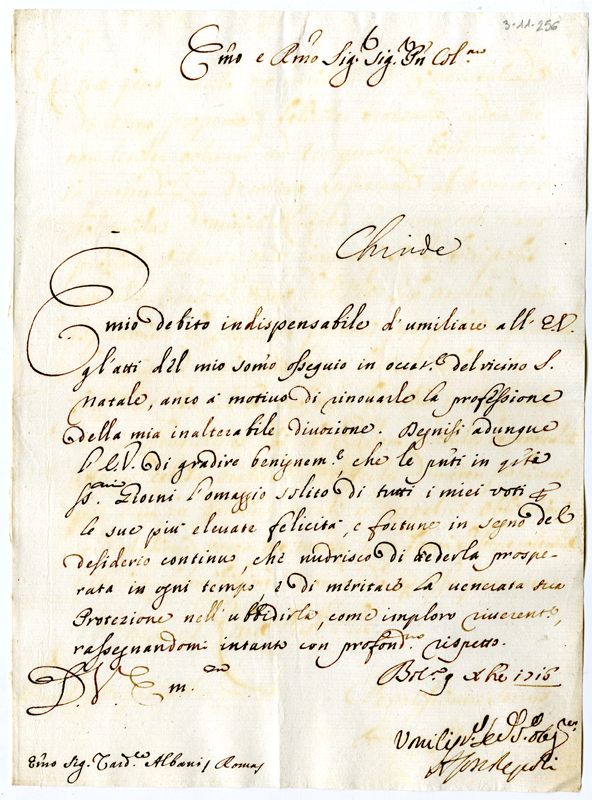 3-11-256
Emo e Rmo Sig.r Sig.r Pn Col.mo
E mio debito indispensabile d'umiliare all'E.V.
gl'atti del mio somo osseguio in occas.e del vicino S.
Natale, anco a motivo di rinovarle la professione
della mia inalterabile divozione. Degnisi adunque
l'E.V. di gradire benignem.e, che le pnti in q'sta
SS.mi Giorni l'omaggio solito di tutti i miei voti p
le sue più elevate felicità, e fortune in segno del
desiderio continuo, che nudrisco di vederla prospe-
rata in ogni tempo, e di meritare la venerata sua
Protezione nell'ubbidirla, come imploro riverent.e,
rassegnandomi intanto con profond.mo rispetto.
D. V. Em.
Bol.a 9 Xbre 1716
Emo Sig. Card.le Albani / Roma /